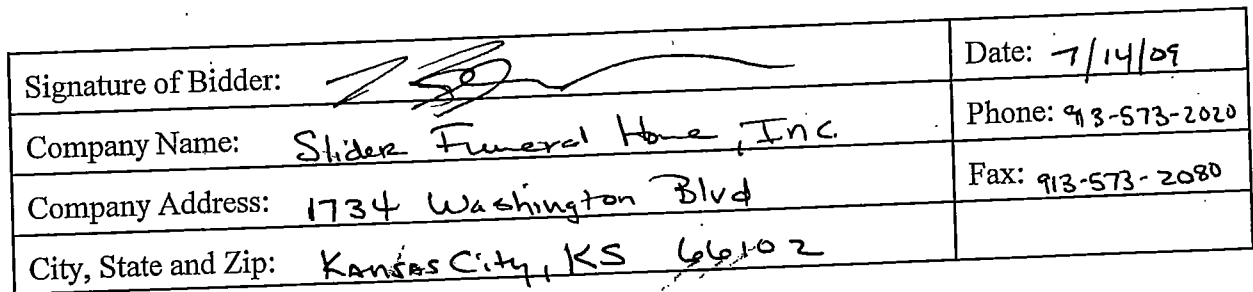 Signature of Bidder:
Date: 7/14/09
Company Name: Slider Funeral Home, Inc.
Phone: 913-573-2020
Company Address: 1734 Washington Blvd
Fax: 913-573-2080
City, State and Zip: Kansas City, KS 66102